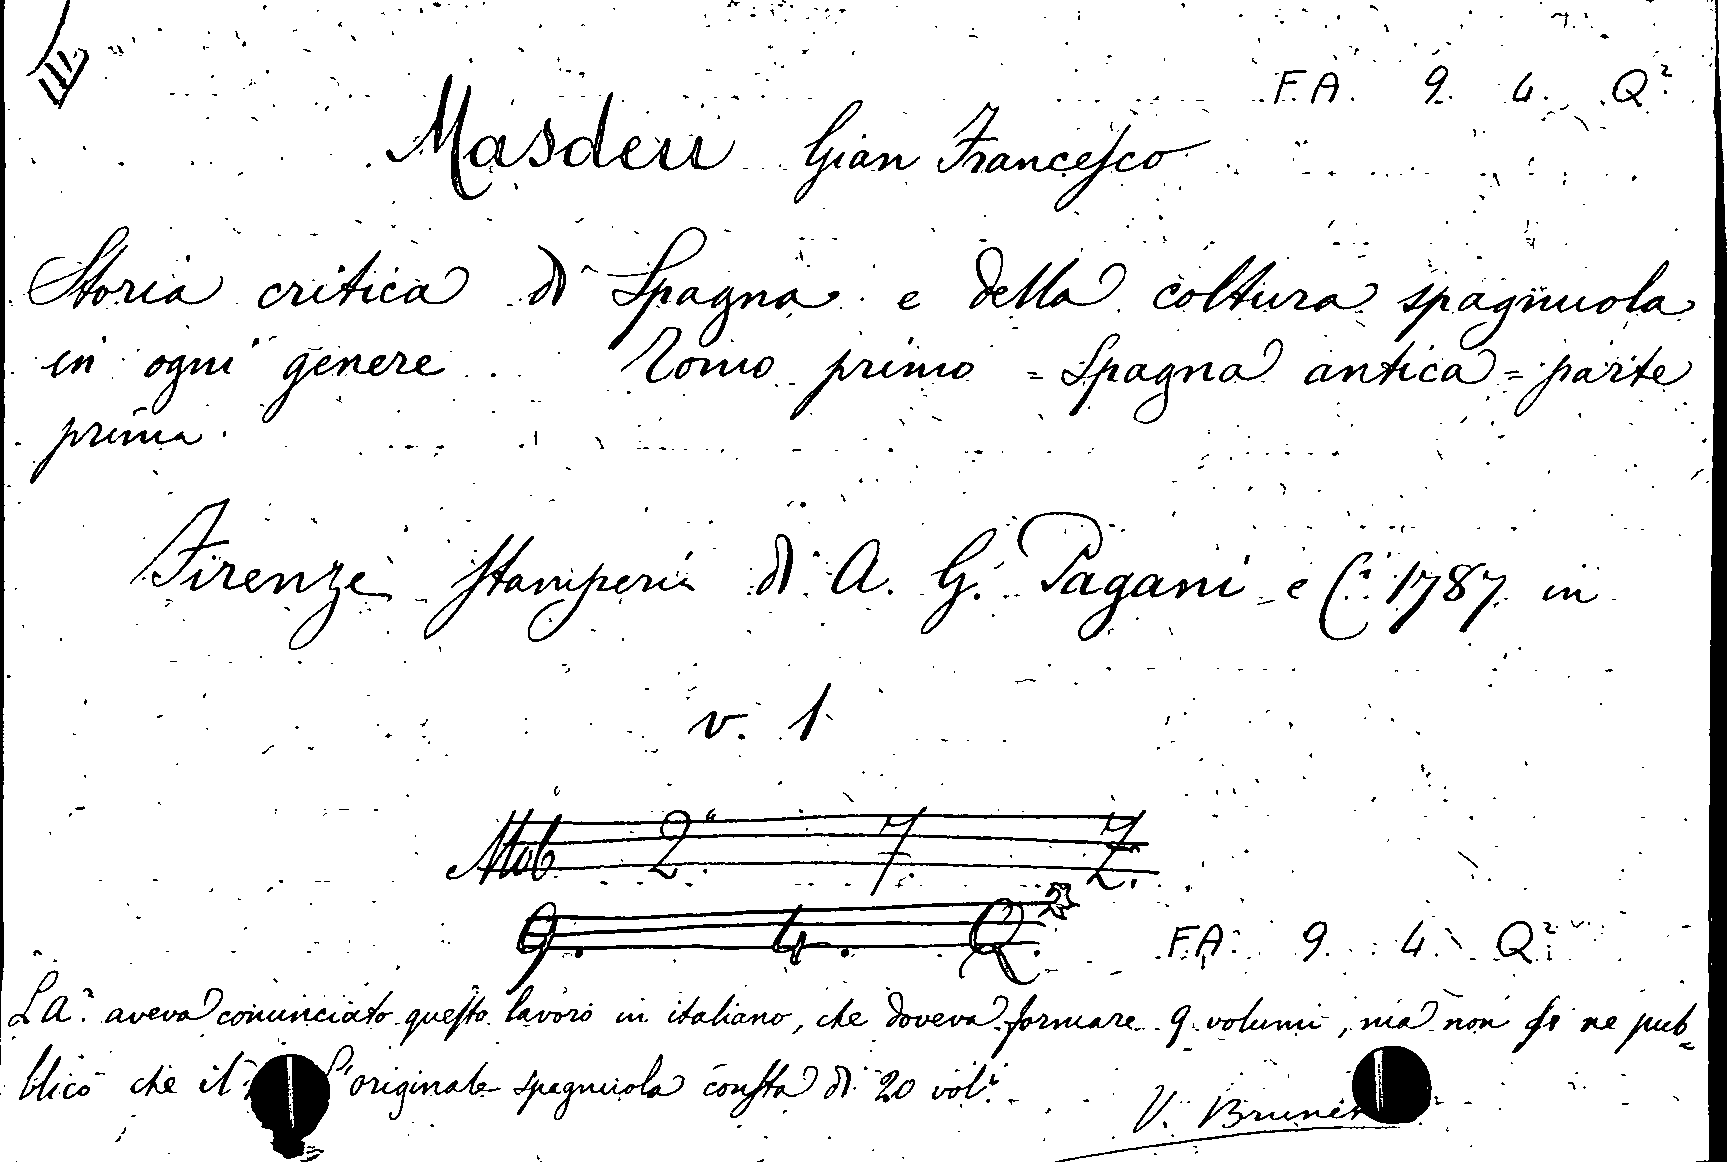 F. A. 9. 4. Q.²
Masdeu Gian Francesco
Storia critica di Spagna e della coltura spagnuola
in ogni genere. Tomo primo = Spagna antica = parte
prima.
Firenze Stamperia di A. G. Pagani e C.i 1787 in
v. 1
Mob 2.° 7. 7.
9. 4. Q.
F. A. 9. 4. Q.²
L'A.e aveva cominciato questo lavoro in italiano, che doveva formare 9 volumi, ma non se ne pub=
blicò che il L'originale spagnuola consta di 20 vol.i
V. Brunet